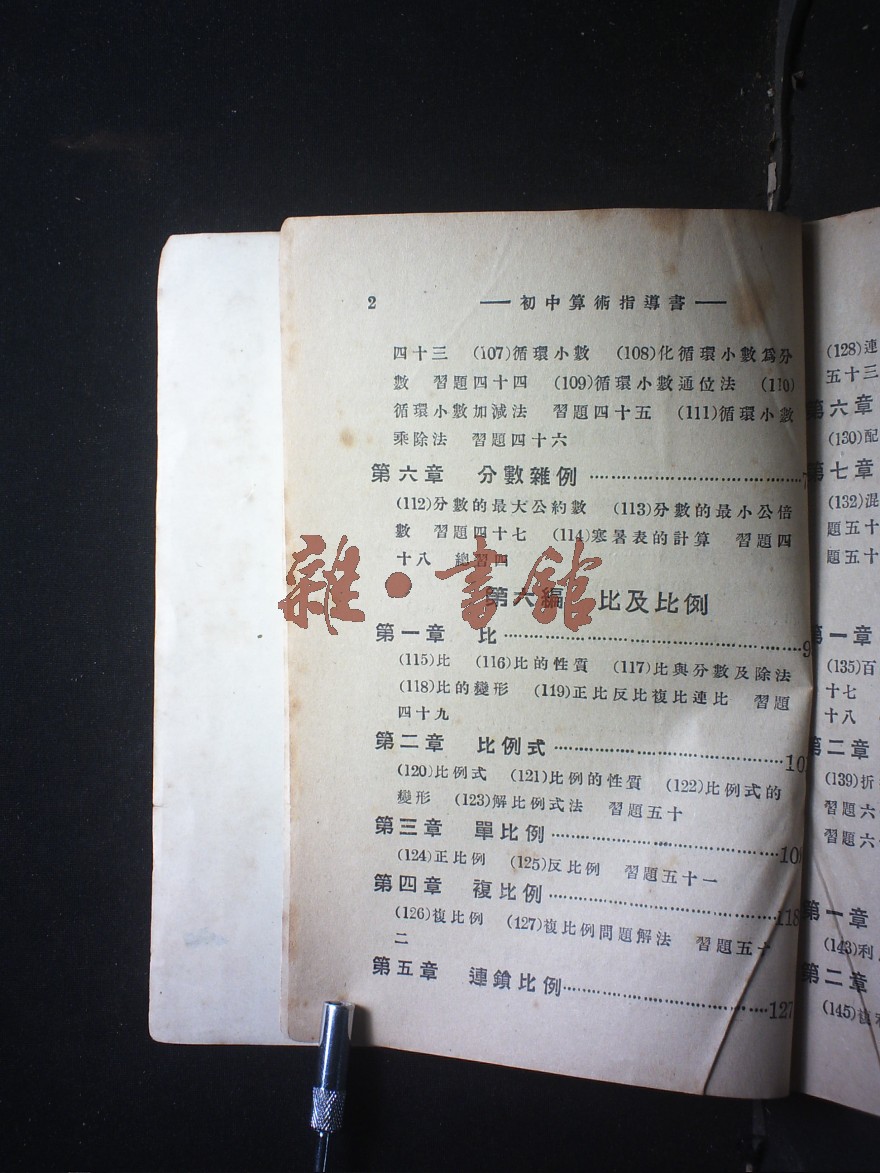 2 —初中算術指導書—
四十三 (107)循環小數 (108)化循環小數爲分
數 習題四十四 (109)循環小數通位法 (110)
循環小數加減法 習題四十五 (111)循環小數
乘除法 習題四十六
第六章 分數雜例
(112)分數的最大公約數 (113)分數的最小公倍
數 習題四十七 (114)寒暑表的計算 習題四
十八 總習四
雜·書館
第六編 比及比例
第一章 比
(115)比 (116)比的性質 (117)比與分數及除法
(118)比的變形 (119)正比反比複比連比 習題
四十九
第二章 比例式
(120)比例式 (121)比例的性質 (122)比例式的
變形 (123)解比例式法 習題五十
第三章 單比例
(124)正比例 (125)反比例 習題五十一
第四章 複比例……118
(126)複比例 (127)複比例問題解法 習題五十
二
第五章 連鎖比例……127
(128)連
五十三
第六章
(130)配
第七章
(132)混
題五十
題五十
第一章
(135)百
十七
十八
第二章
(139)折
習題六
習題六
第一章
(143)利
第二章
(145)複利